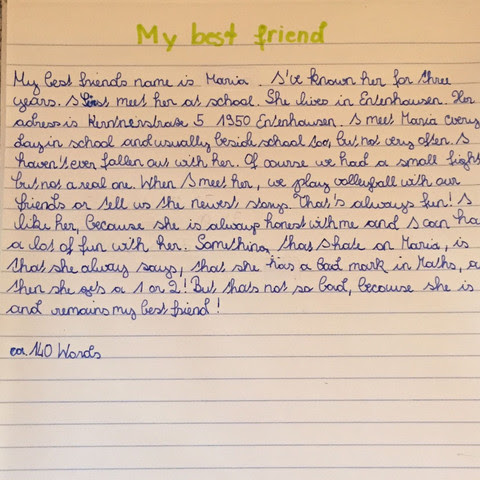 My best friend
My best friends name is Maria. I've known her for three
years. I first meet her at school. She lives in Entenhausen. Her
adress is Kerntnerstrase 5 1950 Entenhausen. I meet Maria every
day in school and usually beside school too, but not very often. I
haven't ever fallen out with her. Of course we had a small figh
but not a real one. When I meet her, we play volleyball with our
friends or tell us the newest story. That's always fun! I
like her, because she is always honest with me and I can ha
a lot of fun with her. Something, thas I hate on Maria, is
that she always says, that she has a bad mark in Maths, a
then she gets a 1 or 2! But thats not so bad, because she is
and remains my best friend!
ca. 140 Words